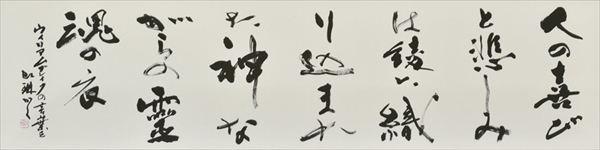 人の喜び
と悲しみ
は綾に織
り込まれ
た神な
がらの靈
魂の衣
ウィリアムブレイクの言葉を